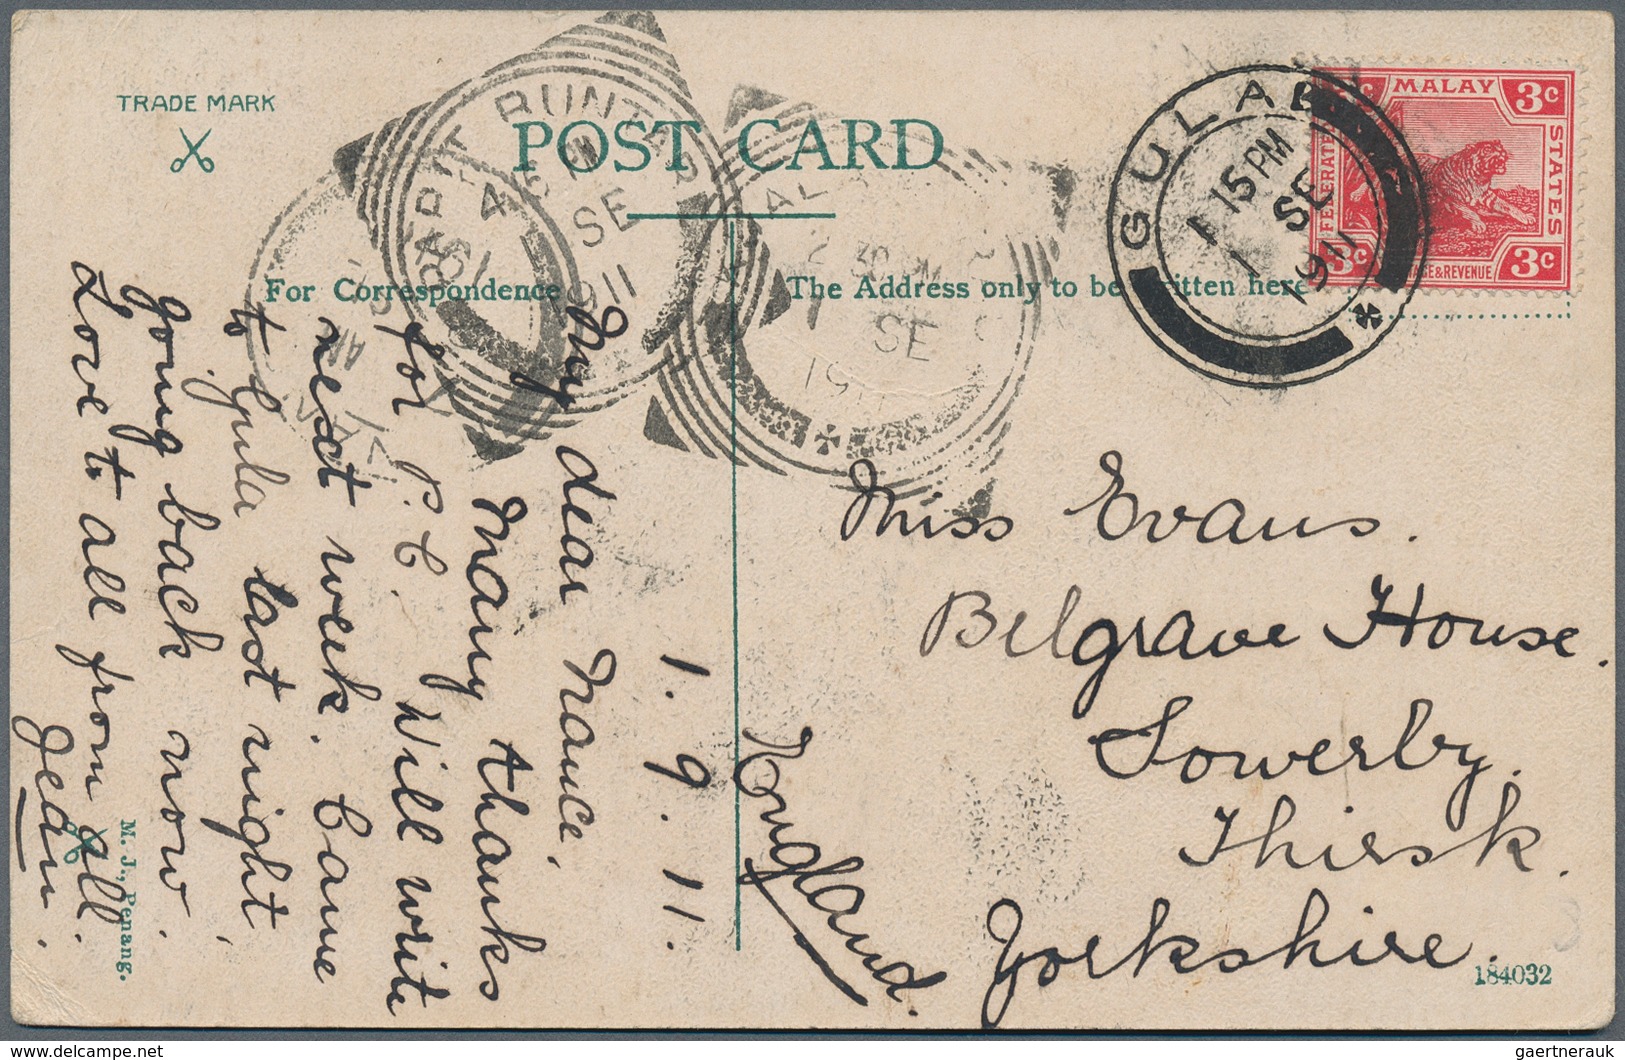 TRADE MARK
POST CARD
For Correspondence
The Address only to be written here
1. 9. 11.
My dear Nance,
Many thanks
for P.C. Will write
next week. Came
to Gula last night,
going back now.
Love to all from
Jean.
Miss Evans.
Belgrave House.
Sowerby.
Thirsk.
Yorkshire.
England.
GULA
1 15 PM
1 SE
1911
PARIT BUNTAR
4
SE
1911
2 30 PM
1 SE
MALAY
STATES
3c
3c
3c
POSTAGE & REVENUE
M. J., Penang.
184032
gaertnerauk